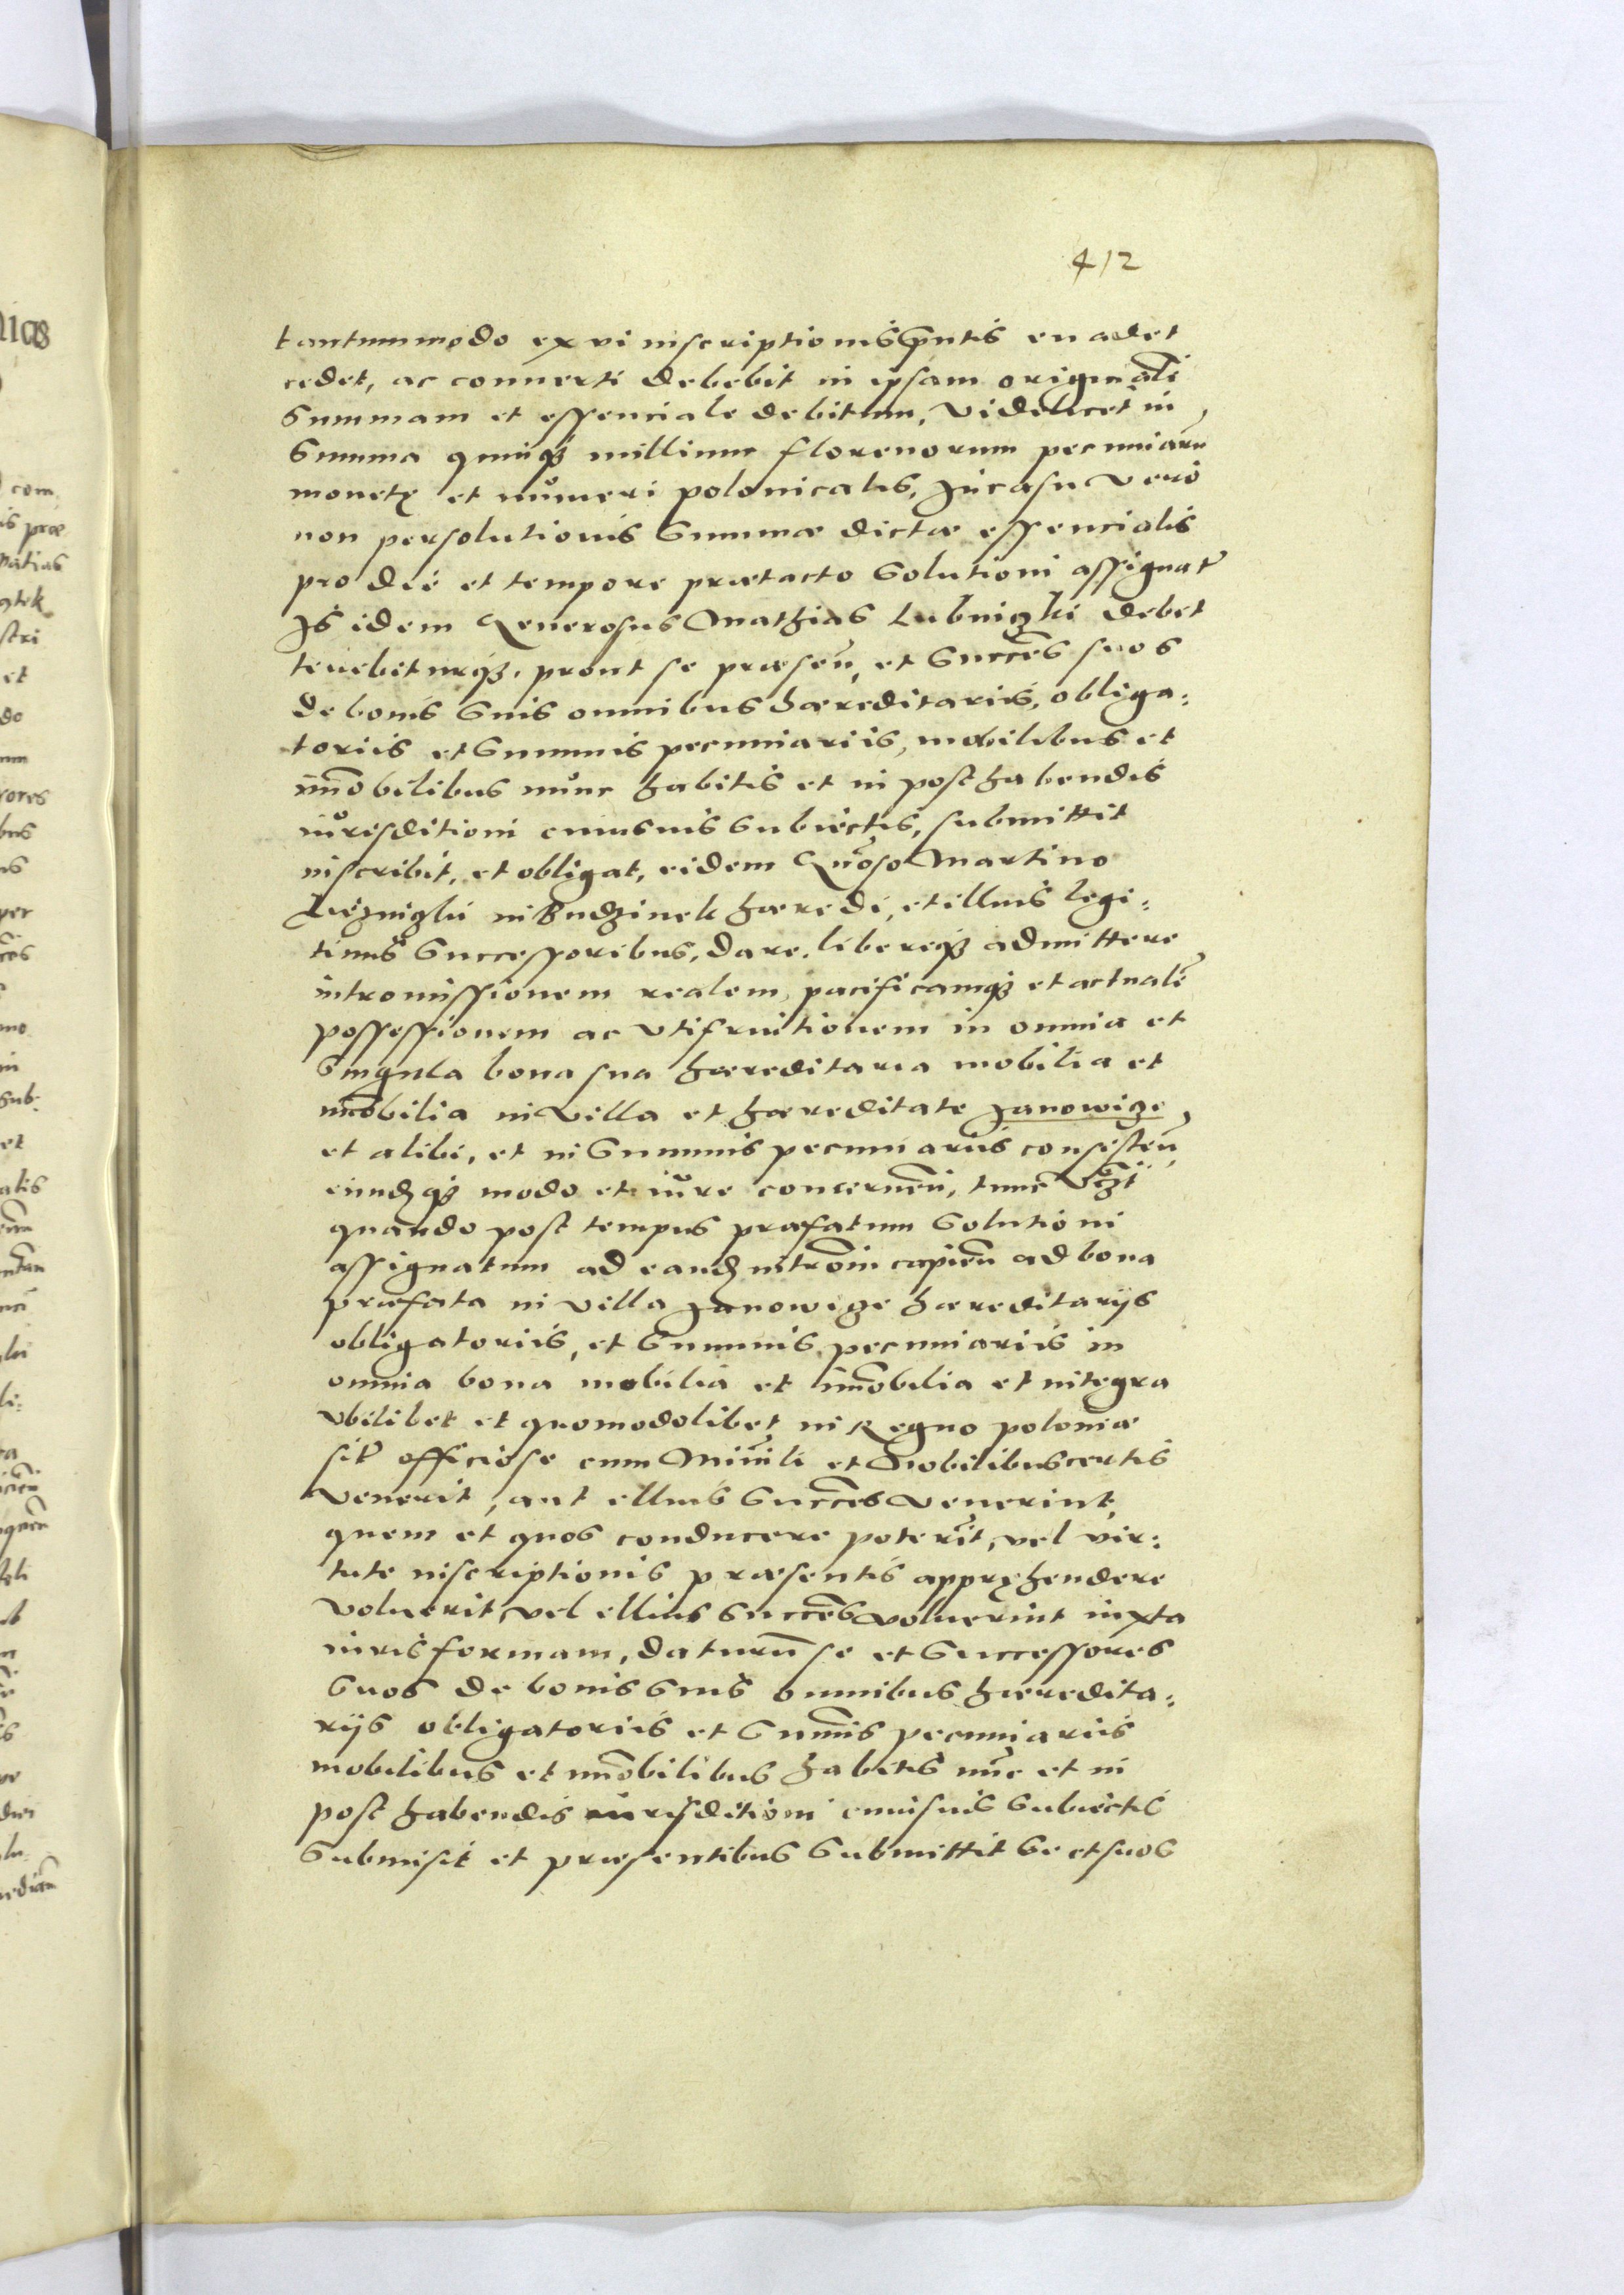 412
tantummodo ex vi inscriptionis pñtis euadet
cedet, ac conuerti debebit in ipsam originalẽ
Summam et essenciale debitum, videlicet in
Summa quinq3 millium florenorum pecuniarũ
monetę et nůmeri polonicalis, Jn casu vero
non persolutionis Summæ dictæ essencialis
pro die et tempore prætacto Solutioni assignat̃
Js idem Generosus Mathias Lubniczki debet
tenebiturq3, prout se præseñ, et Succẽs suos
de bonis Suis omnibus hæreditariis, obliga:
toriis et Summis pecuniariis, mobilibus et
im̃obilibus nůnc habitis et in post habendis
iůrisditioni cuiusuis Subiectis, submittit
inscribit, et obligat, eidem Gñoso Martino
in Budzinek hæredi, et illius legi:
timis Successoribus, dare, libereq3 admittere
intromissionem realem, pacificamq3 et actualẽ
possessionem ac vtifruitionem in omnia et
Singula bona sua hæreditaria mobilia et
im̃obilia in villa et hæreditate Janowicze,
et alibi, et in Summis pecuniariis consisteñ,
modo et iůre concerneñ, tunc
quando post tempus præfatum Solutioni
assignatum ad eand intrõm capieñ ad bona
præfata in villa Janowicze hæreditarijs
obligatoriis, et Summis pecuniariis in
omnia bona mobilia et im̃obilia et integra
vbilibet et quomodolibet in Regno poloniæ
sit̃ officiose cum Miñli et Nobilibus certis
venerit, aut illius Succẽs venerint,
quem et quos conducere poterit, vel vir:
tute inscriptionis præsentis appręhendere
voluerit, vel illius Succẽs voluerint iuxta
iuris formam, daturũ se et Successores
Suos de bonis Suis omnibus hæredita:
rijs obligatoriis et Sum̃is pecuniariis
mobilibus et im̃obilibus habitis nũc et in
post habendis iurisditioni cuiusuis Subiectis
Submisit et præsentibus Submittit Se et suos